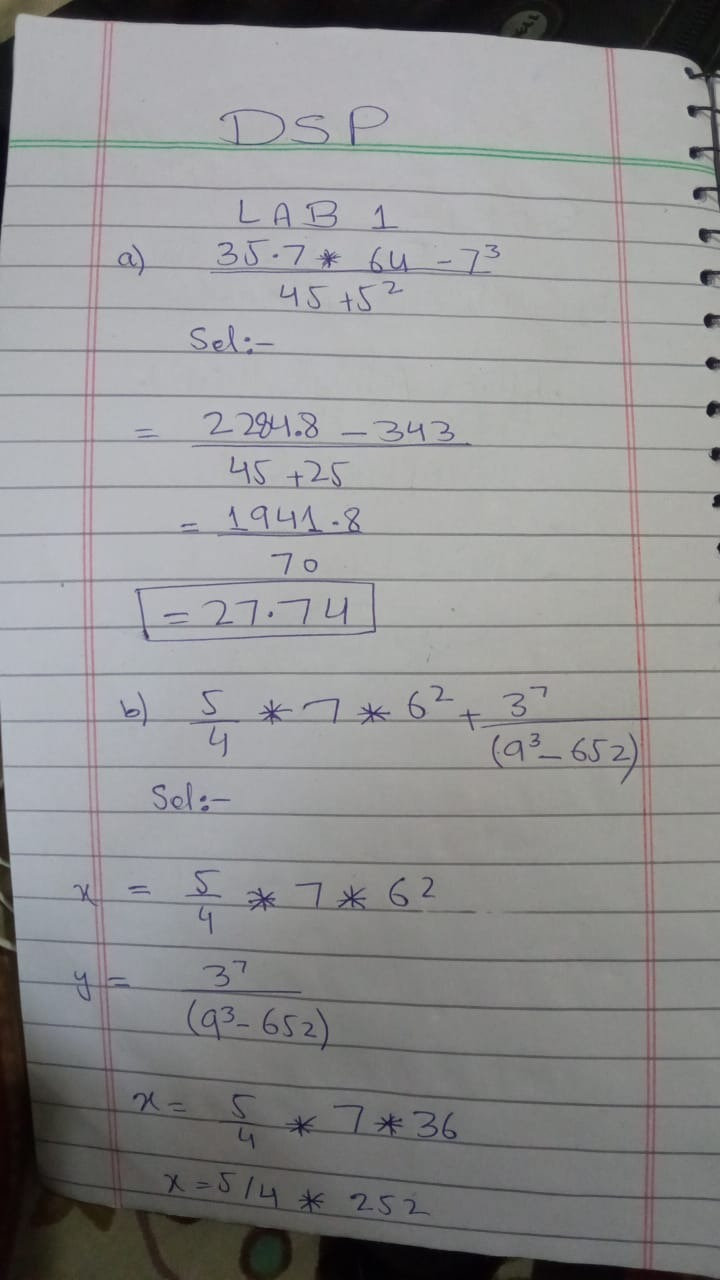 DSP
LAB 1
a) 35.7 * 64 - 7³
45 + 5²
Sol:-
= 2284.8 - 343
45 + 25
= 1941.8
70
= 27.74
b) 5/4 * 7 * 6² + 3⁷
(9³ - 652)
Sol:-
x = 5/4 * 7 * 6²
y = 3⁷
(9³ - 652)
x = 5/4 * 7 * 36
x = 5/4 * 252